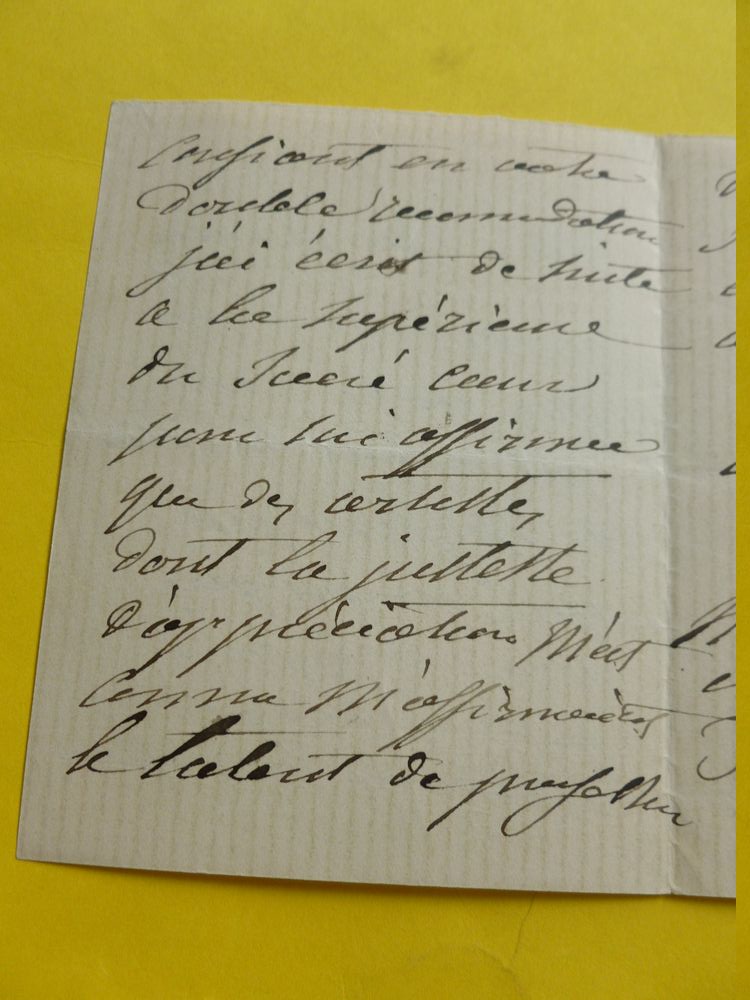 Confiant en votre
double recomendation
j'ai écrit de suite
a la supérieure
du Sacré Cœur
pour lui affirmer
que des artistes
dont la justesse
d'appréciation M'est
connu M'affirmaient
le talent de